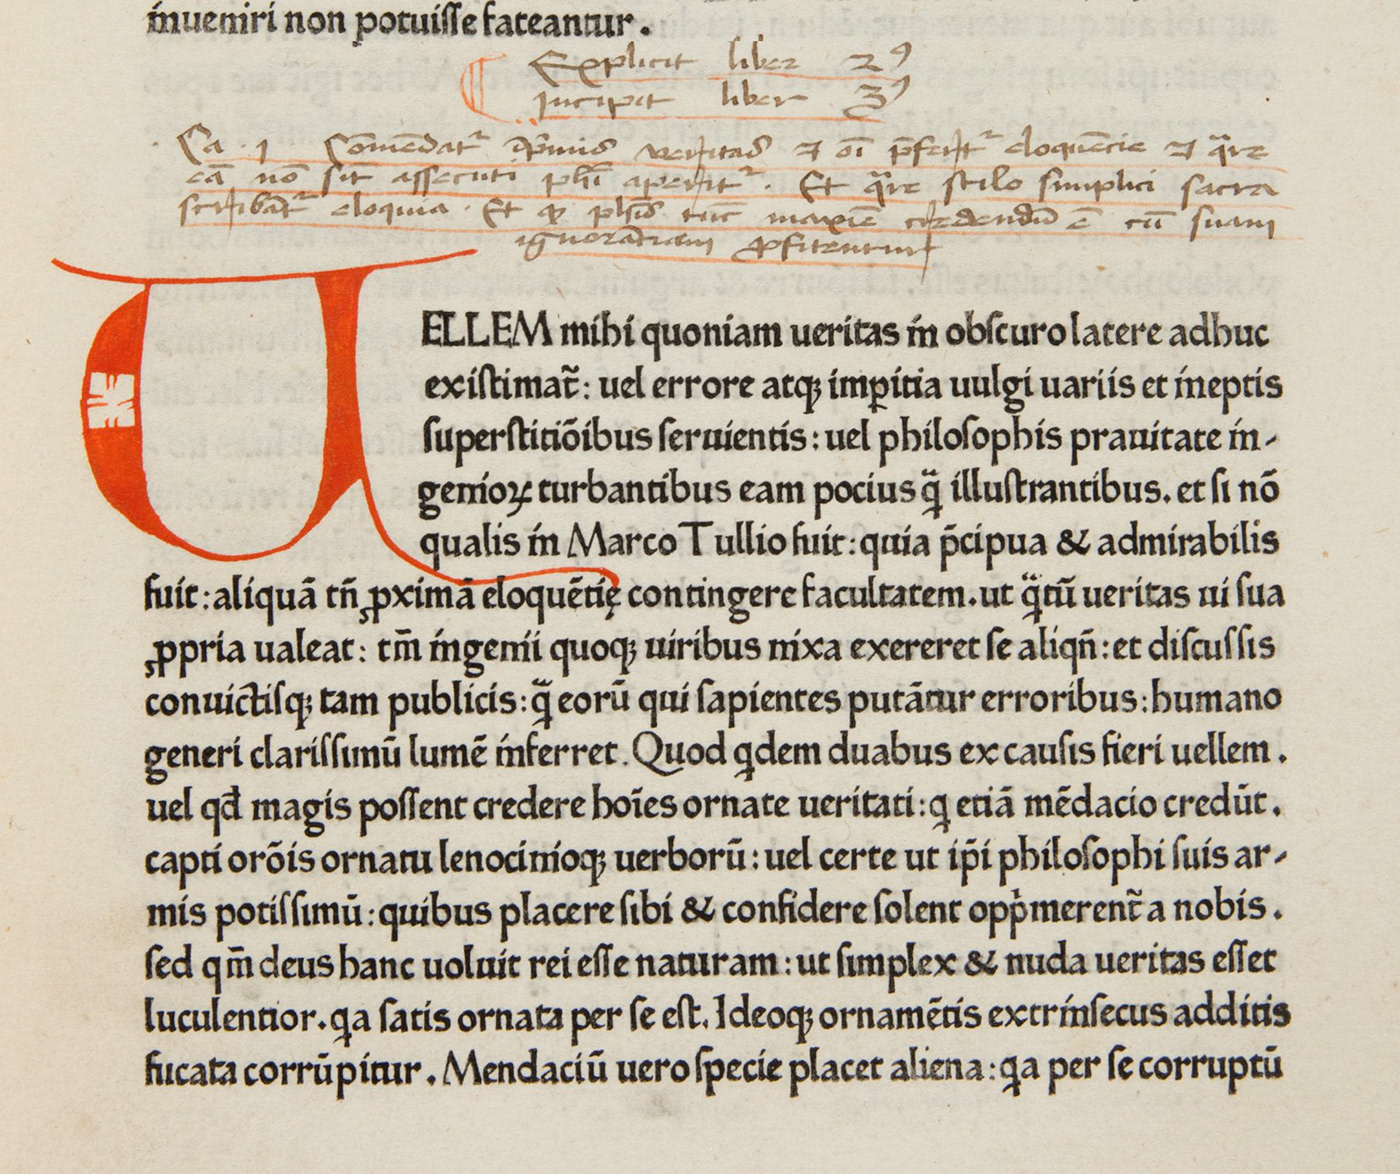 inueniri non potuiſſe fateantur.
Explicit liber 2ꝰ
Incipit liber 3ꝰ
Ca · 1 Co͞mendat᷑ p̲rimis veritas ⁊ oī p̄fert᷑ eloque͞cie ⁊ q̃re
eā no͞ ſu͞t aſſecuti ph̄i aperit᷑. Et q̃re ſtilo ſimplici ſacra
ſcribāt᷑ eloquia. Et ꝙ ph̄is tūc maxīe credendū ē cū ſuam
ignorāciam ꝓfitentur
UELLEM mihi quoniam ueritas in obſcuro latere adhuc
exiſtimat᷑: uel errore atqꝫ imꝑitia uulgi uariis et ineptis
ſuperſtitiōibus ſeruientis: uel philoſophis prauitate in-
genioꝝ turbantibus eam pocius q̃ illuſtrantibus. et ſi nō
qualis in Marco Tullio fuit: quia p̄cipua & admirabilis
fuit: aliquā tn̄ ꝓximā eloquētię contingere facultatem. ut q̃tū ueritas ui ſua
ꝓpria ualeat: tm̄ ingenii quoqꝫ uiribus nixa exereret ſe aliqn̄: et diſcuſſis
conuictiſqꝫ tam publicis: q̃ eorū qui ſapientes putātur erroribus: humano
generi clariſſimū lumē inferret. Quod qͥdem duabus ex cauſis fieri uellem.
uel qđ magis poſſent credere hoīes ornate ueritati: qͥ etiā mēdacio credūt.
capti orōis ornatu lenocinioqꝫ uerborū: uel certe ut ip̄i philoſophi ſuis ar-
mis potiſſimū: quibus placere ſibi & confidere ſolent opp̍merent᷑ a nobis.
ſed qm̄ deus hanc uoluit rei eſſe naturam: ut ſimplex & nuda ueritas eſſet
luculentior. qͥa ſatis ornata per ſe eſt. Ideoqꝫ ornamētis extrinſecus additis
fucata corrūpitur. Mendaciū uero ſpecie placet aliena: qͥa per ſe corruptū